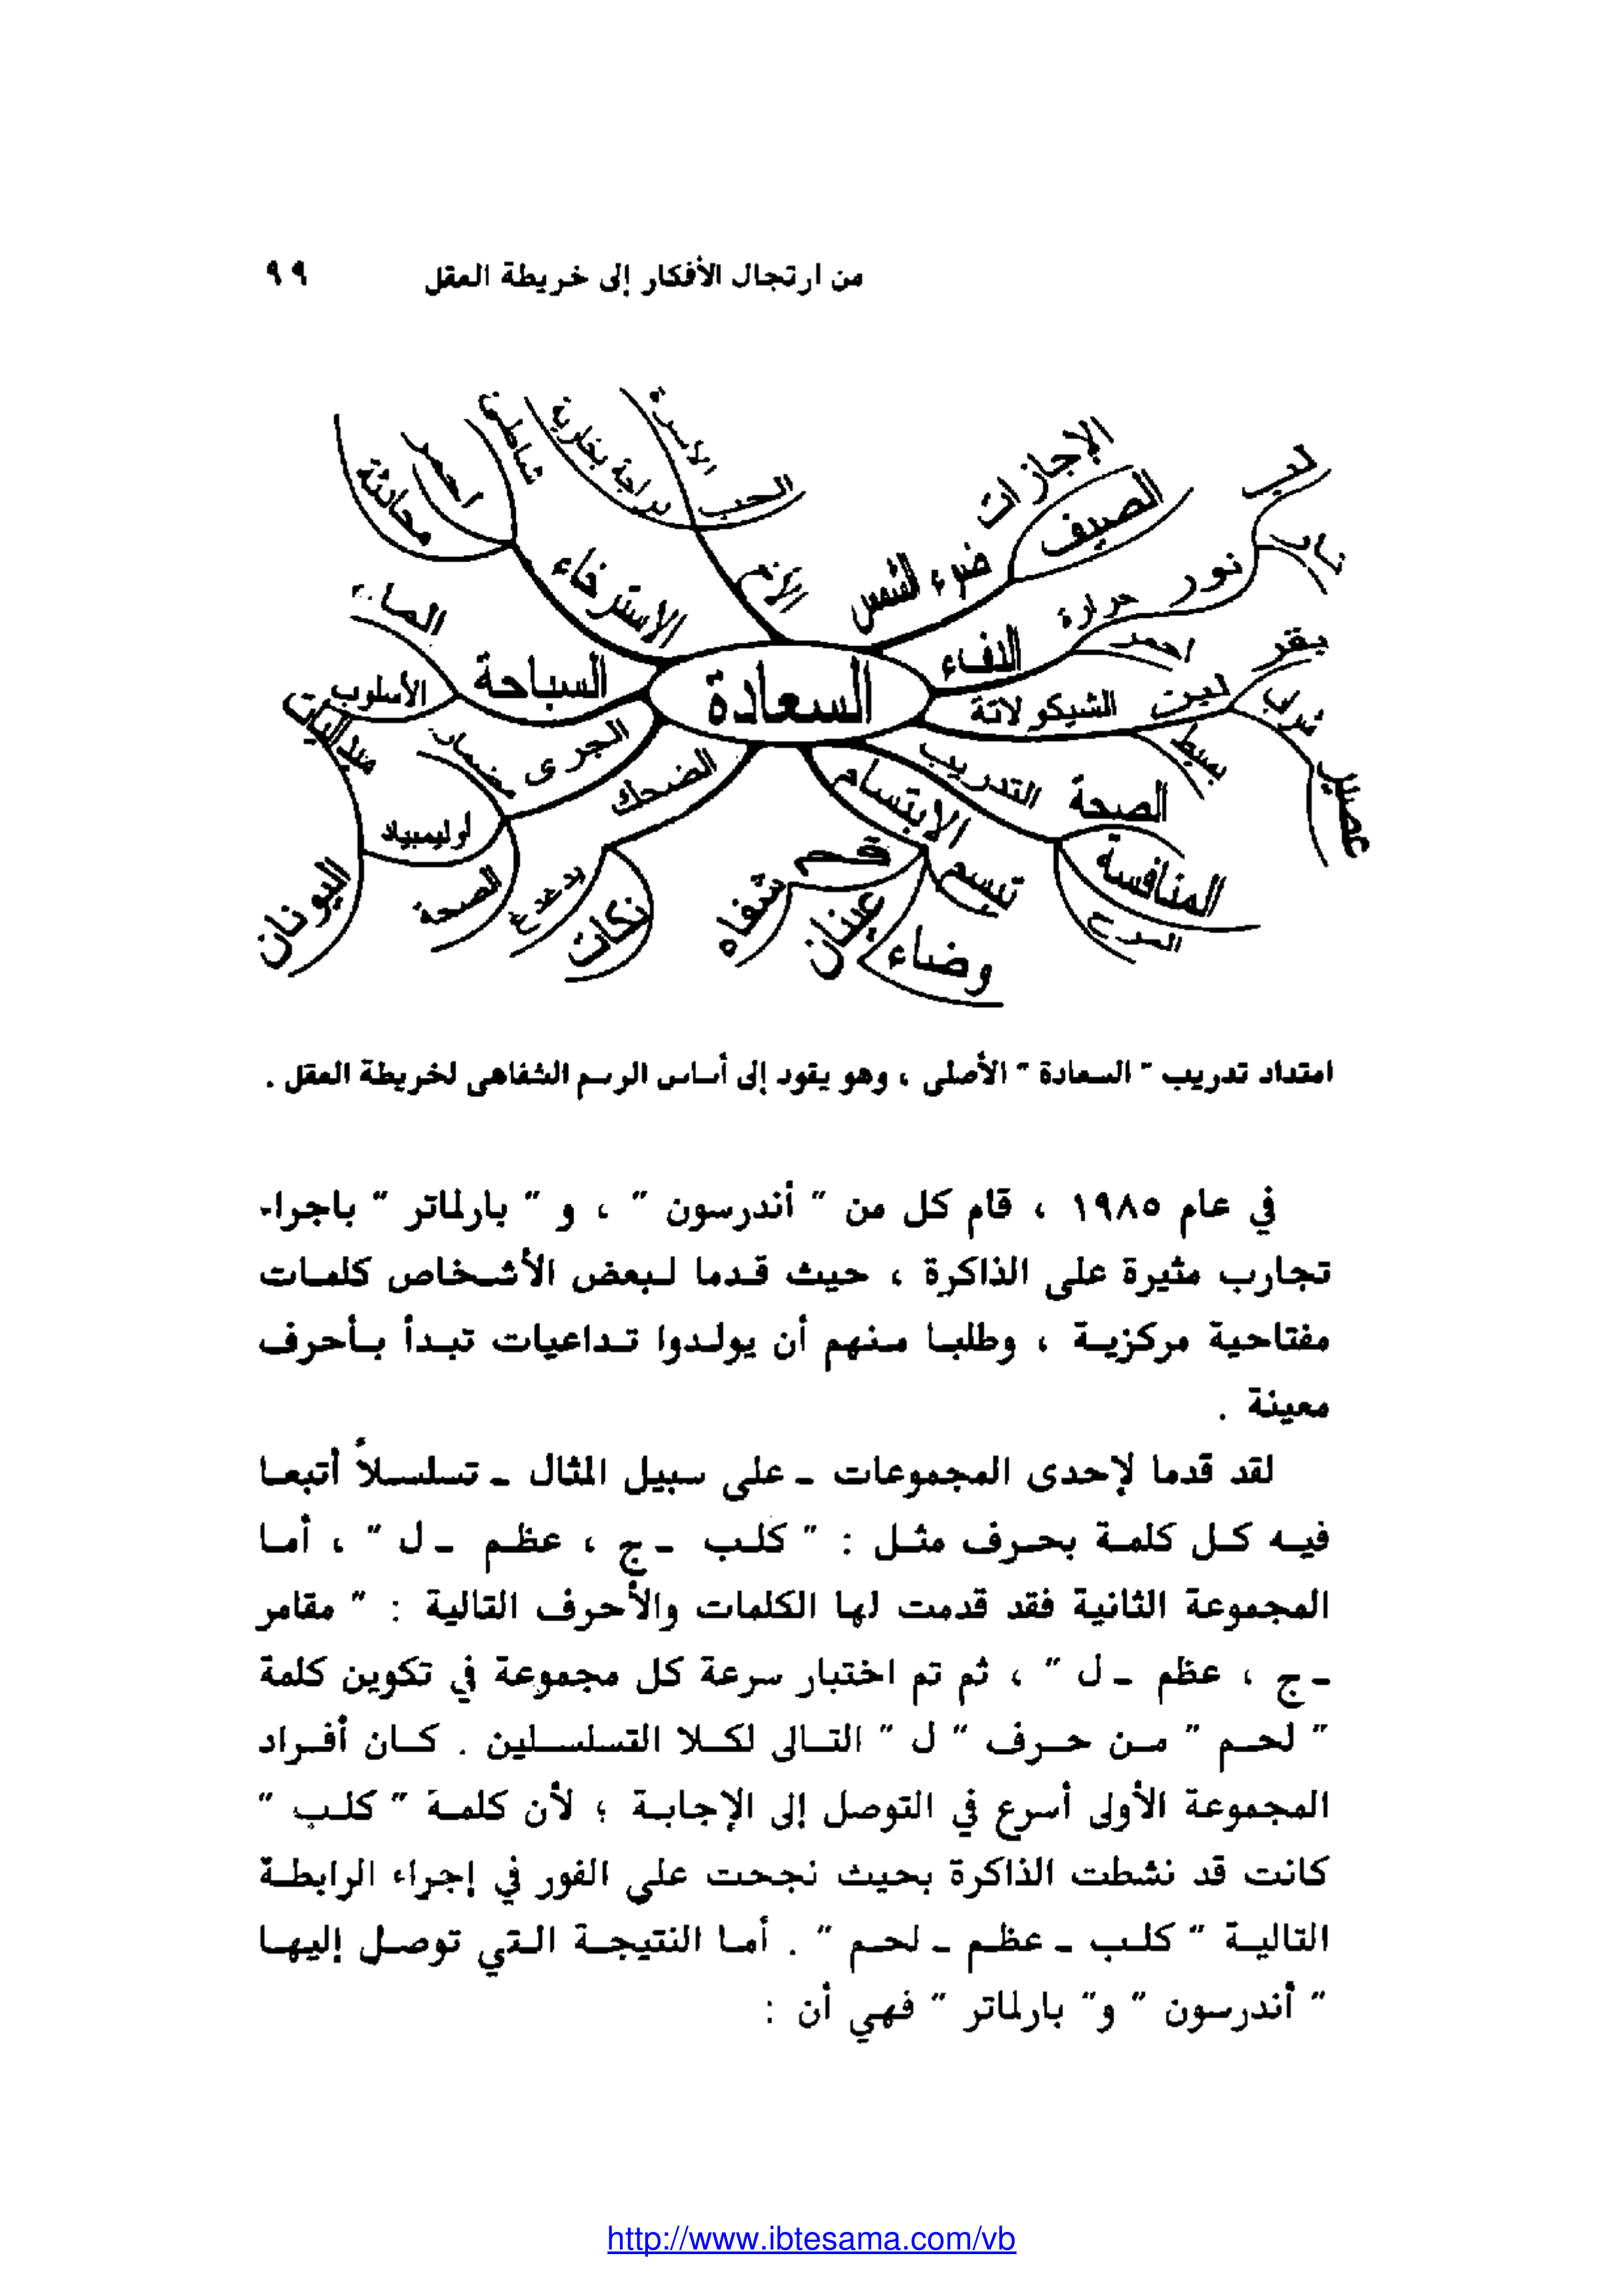 من ارتجال الأفكار إلى خريطة العقل ٩٩
السعادة
ضوء الشمس
الصيف
الإجازات
الدفء
حرارة
نور
الشيكولاتة
لبن
بقر
بسيط
عصير
التدريب
الصحة
المنافسة
المرح
الابتسام
تبسم
فم
شفاه
عينان
وضاء
الضحك
نكات
الجرى
مضمار
أوليمبياد
اليونان
الصحة
السباحة
الأسلوب
الاسترخاء
محادثة
الأم
الحب
امتداد تدريب " السعادة " الأصلى ، وهو يقود إلى أساس الرسم الشفاهى لخريطة العقل .
في عام ١٩٨٥ ، قام كل من " أندرسون " ، و " بارلماتر " باجراء
تجارب مثيرة على الذاكرة ، حيث قدما لبعض الأشخاص كلمات
مفتاحية مركزية ، وطلبا منهم أن يولدوا تداعيات تبدأ بأحرف
معينة .
لقد قدما لإحدى المجموعات ـ على سبيل المثال ـ تسلسلاً أتبعا
فيه كل كلمة بحرف مثل : " كلب ـ ج ، عظم ـ ل " ، أما
المجموعة الثانية فقد قدمت لها الكلمات والأحرف التالية : " مقامر
ـ ج ، عظم ـ ل " ، ثم تم اختبار سرعة كل مجموعة في تكوين كلمة
" لحم " من حرف " ل " التالى لكلا التسلسلين . كان أفراد
المجموعة الأولى أسرع في التوصل إلى الإجابة ؛ لأن كلمة " كلب "
كانت قد نشطت الذاكرة بحيث نجحت على الفور في إجراء الرابطة
التالية " كلب ـ عظم ـ لحم " . أما النتيجة التي توصل إليها
" أندرسون " و" بارلماتر " فهي أن :
http://www.ibtesama.com/vb